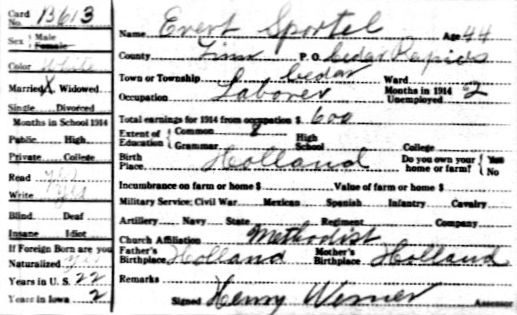 Card No. B613
Sex Male Female
Color White
Married X Widowed
Single Divorced
Months in School 1914
Public High
Private College
Read yes
Write yes
Blind Deaf
Insane Idiot
If Foreign Born are you
Naturalized yes
Years in U. S. 22
Years in Iowa 2
Name Evert Sportel Age 44
County Linn P. O. Cedar Rapids
Town or Township Cedar Ward
Occupation Laborer Months in 1914 Unemployed 2
Total earnings for 1914 from occupation $ 600
Extent of Education Common 8 Grammar High School College
Birth Place Holland Do you own your home or farm? Yes No
Incumbrance on farm or home $ Value of farm or home $
Military Service: Civil War Mexican Spanish Infantry Cavalry
Artillery Navy State Regiment Company
Church Affiliation Methodist
Father's Birthplace Holland Mother's Birthplace Holland
Remarks
Signed Henry Werner Assessor